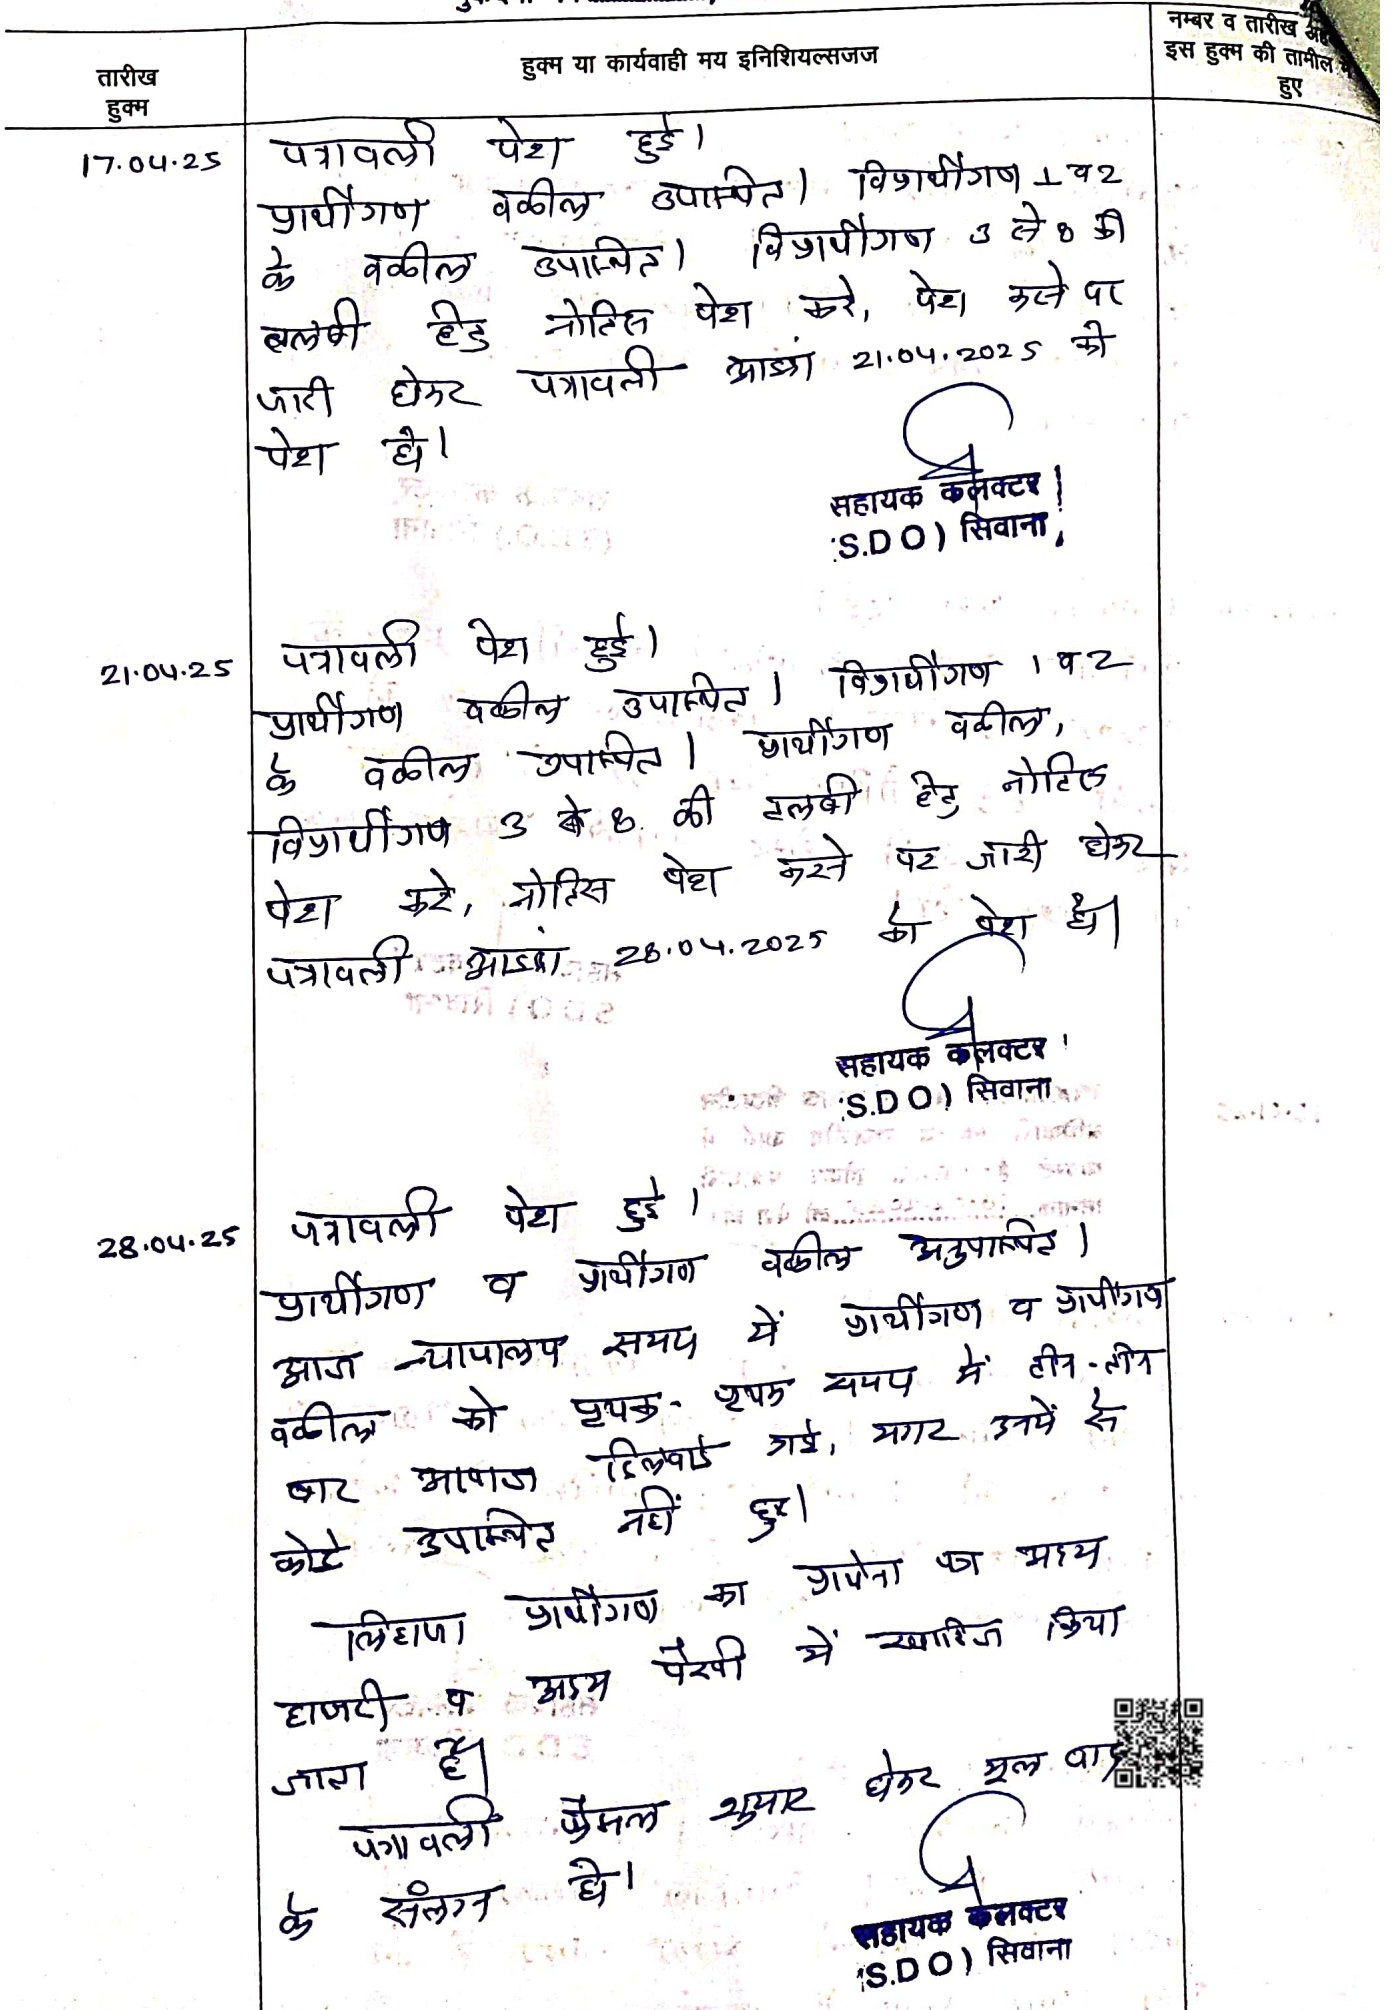 तारीख
हुक्म
हुक्म या कार्यवाही मय इनिशियल्सजज
नम्बर व तारीख
इस हुक्म की तामील में
हुए
17.04.25
पत्रावली पेश हुई।
प्रार्थीगण वकील उपस्थित। विप्रार्थीगण 1 व 2
के वकील उपस्थित। विप्रार्थीगण 3 से 8 की
तलबी हेतु नोटिस पेश करे, पेश करने पर
जारी होकर पत्रावली आइन्दा 21.04.2025 को
पेश हो।
सहायक कलक्टर
(S.D O) सिवाना
21.04.25
पत्रावली पेश हुई।
प्रार्थीगण वकील उपस्थित। विप्रार्थीगण 1 व 2
के वकील उपस्थित। प्रार्थीगण वकील,
विप्रार्थीगण 3 से 8 की तलबी हेतु नोटिस
पेश करे, नोटिस पेश करने पर जारी होकर
पत्रावली आइन्दा 28.04.2025 को पेश हो।
सहायक कलक्टर
(S.D O) सिवाना
28.04.25
पत्रावली पेश हुई।
प्रार्थीगण व प्रार्थीगण वकील अनुपस्थित।
आज न्यायालय समय में प्रार्थीगण व प्रार्थीगण
वकील को पृथक-पृथक समय में तीन-तीन
बार आवाज दिलवाई गई, मगर उनमें से
कोई उपस्थित नहीं हुए।
लिहाजा प्रार्थीगण का प्रार्थना पत्र अदम
हाजरी व अदम पैरवी में खारिज किया
जाता है।
पत्रावली फैसल शुमार होकर मूल वाद
के संलग्न हो।
सहायक कलक्टर
(S.D O) सिवाना